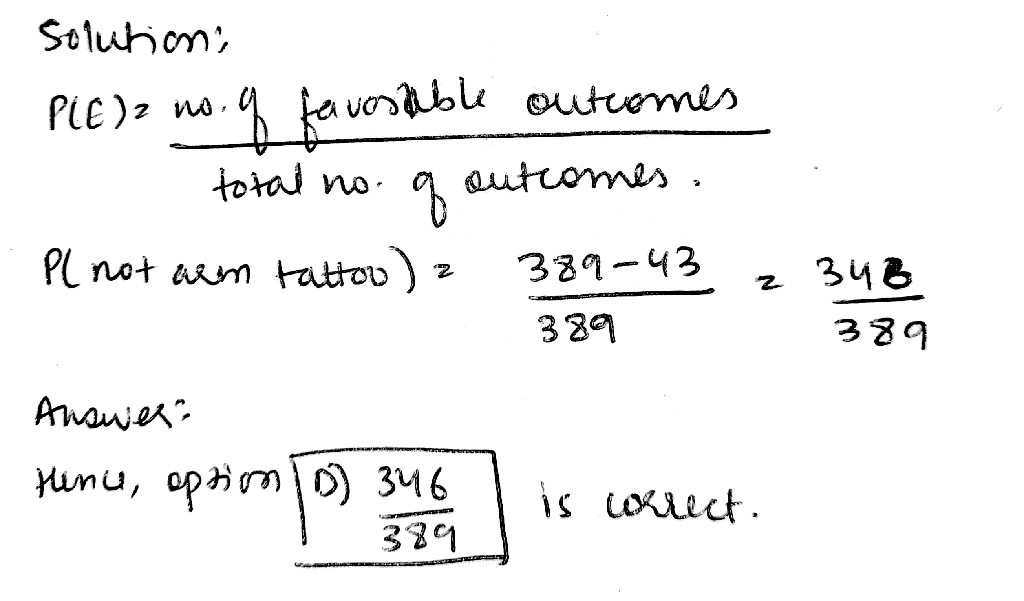 Solution:
P(E) = no. of favorable outcomes
total no. of outcomes.
P(not arm tattoo) = 389-43 = 346
389 389
Answer:
Hence, option D) 346 is correct.
389